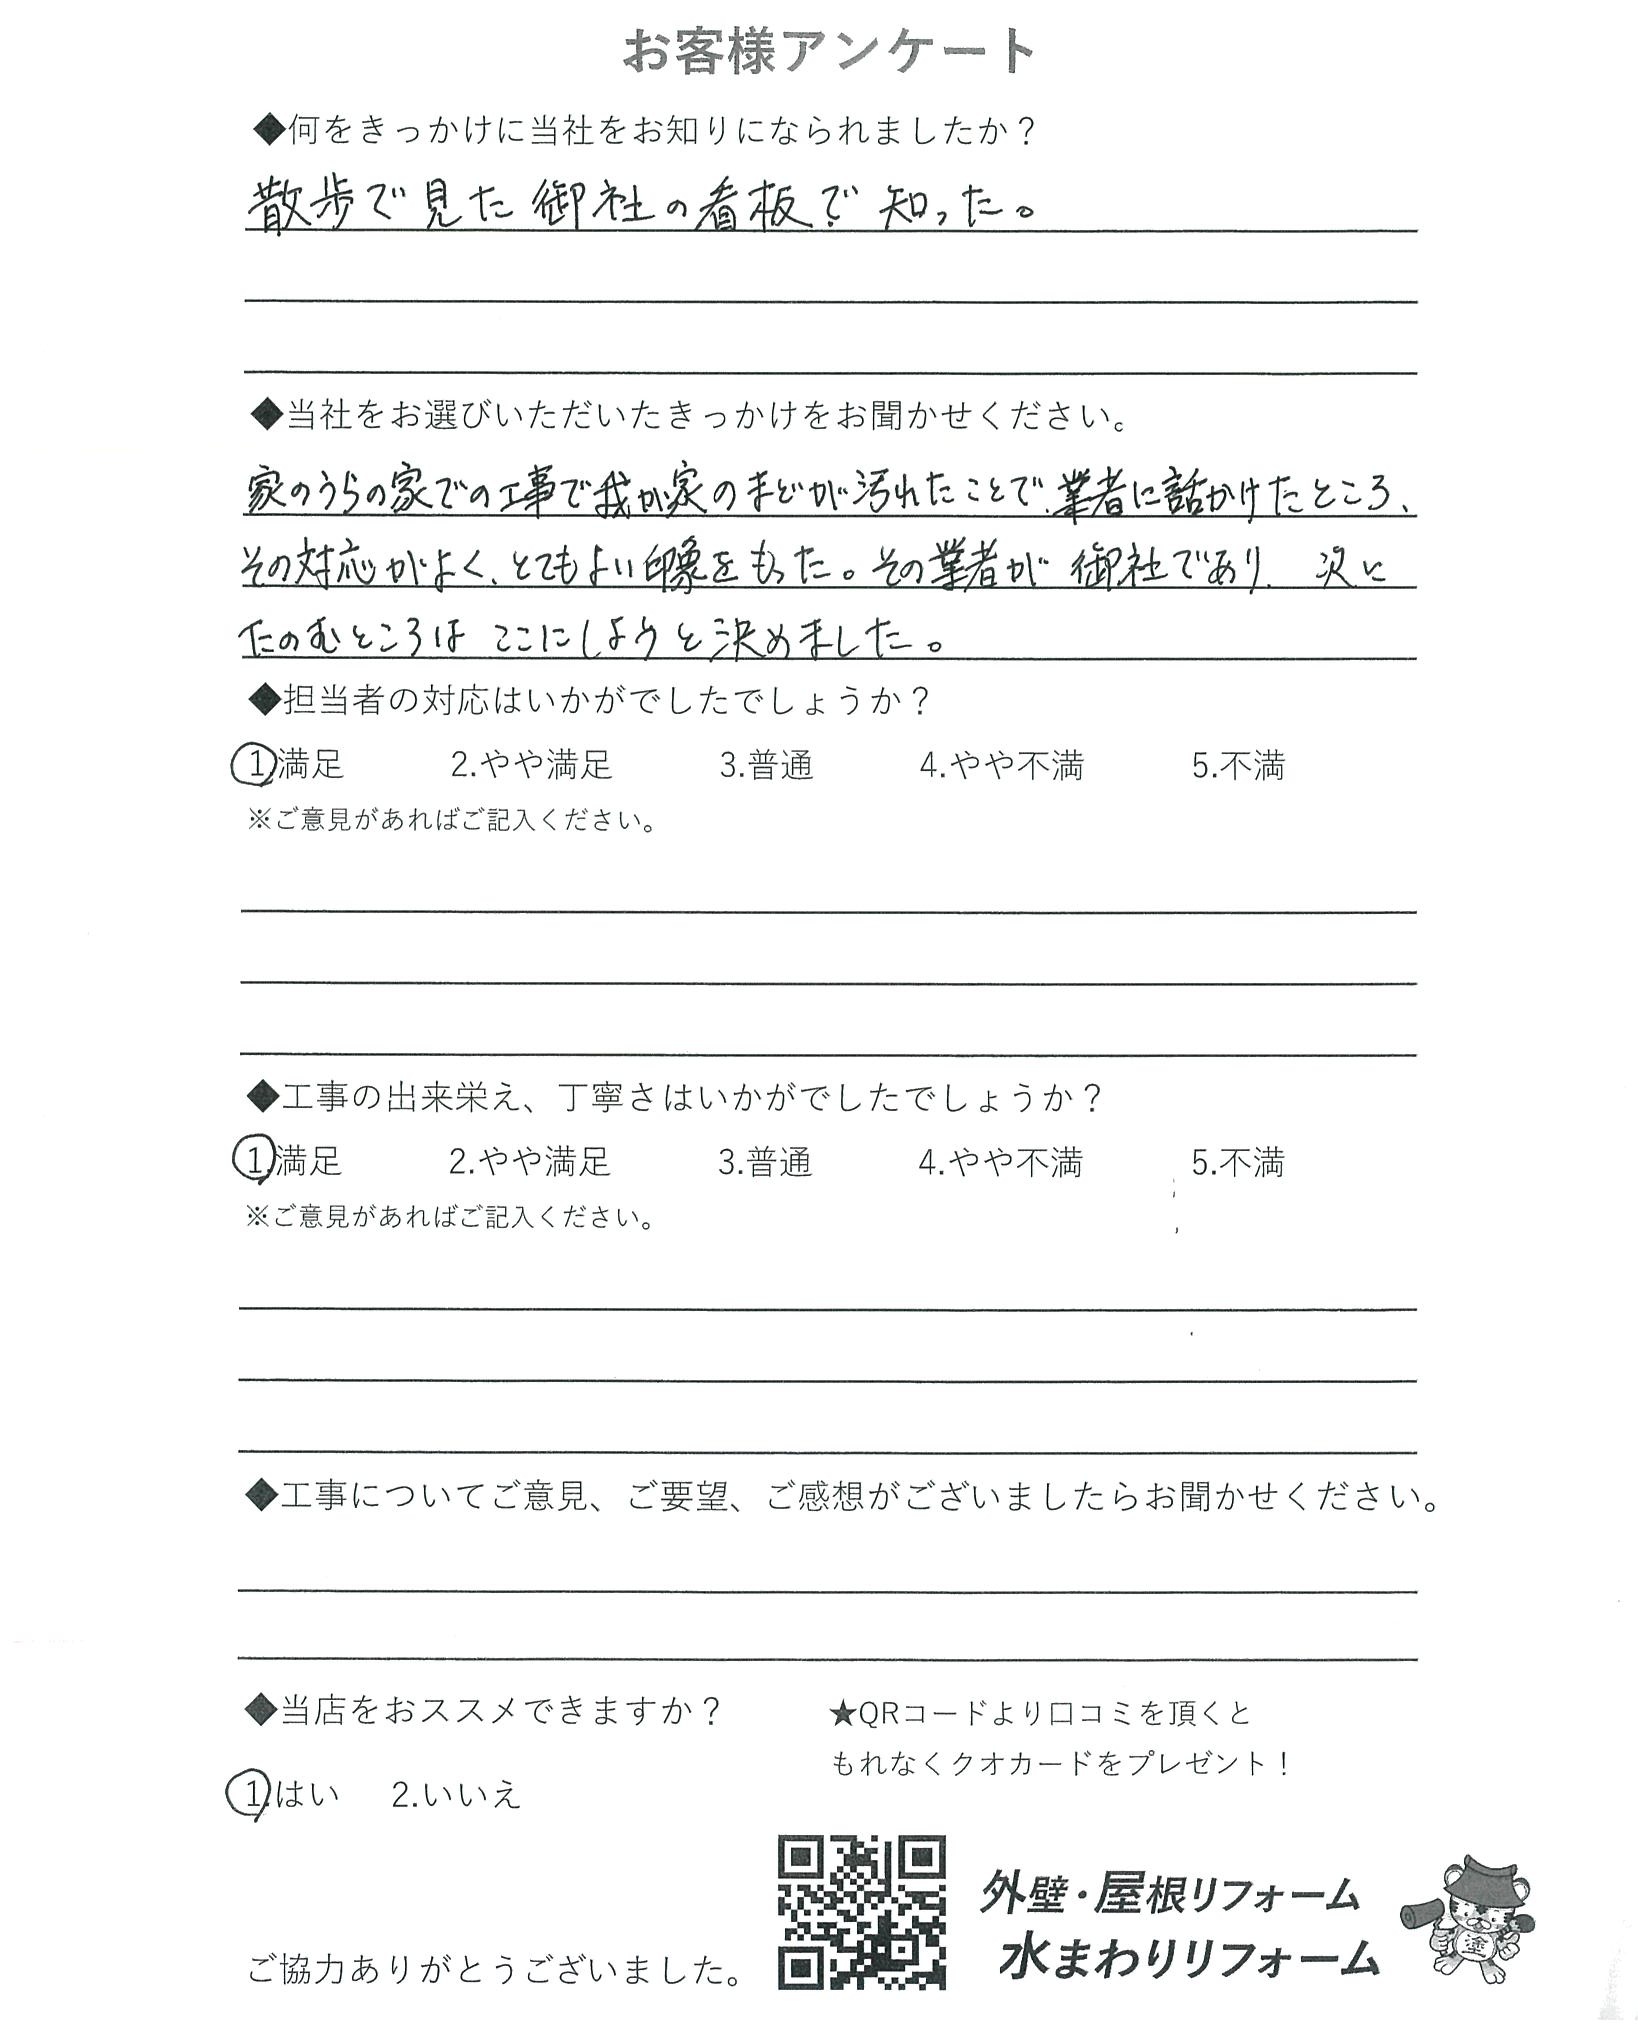 お客様アンケート
◆何をきっかけに当社をお知りになられましたか？
散歩で見た御社の看板で知った。
◆当社をお選びいただいたきっかけをお聞かせください。
家のうらの家での工事で我が家のまどが汚れたことで、業者に話かけたところ、
その対応がよく、とてもよい印象をもった。その業者が御社であり、次に
たのむところはここにしようと決めました。
◆担当者の対応はいかがでしたでしょうか？
1.満足 2.やや満足 3.普通 4.やや不満 5.不満
※ご意見があればご記入ください。
◆工事の出来栄え、丁寧さはいかがでしたでしょうか？
1.満足 2.やや満足 3.普通 4.やや不満 5.不満
※ご意見があればご記入ください。
◆工事についてご意見、ご要望、ご感想がございましたらお聞かせください。
◆当店をおススメできますか？
1.はい 2.いいえ
★QRコードより口コミを頂くと
もれなくクオカードをプレゼント！
ご協力ありがとうございました。
外壁・屋根リフォーム
水まわりリフォーム
塗